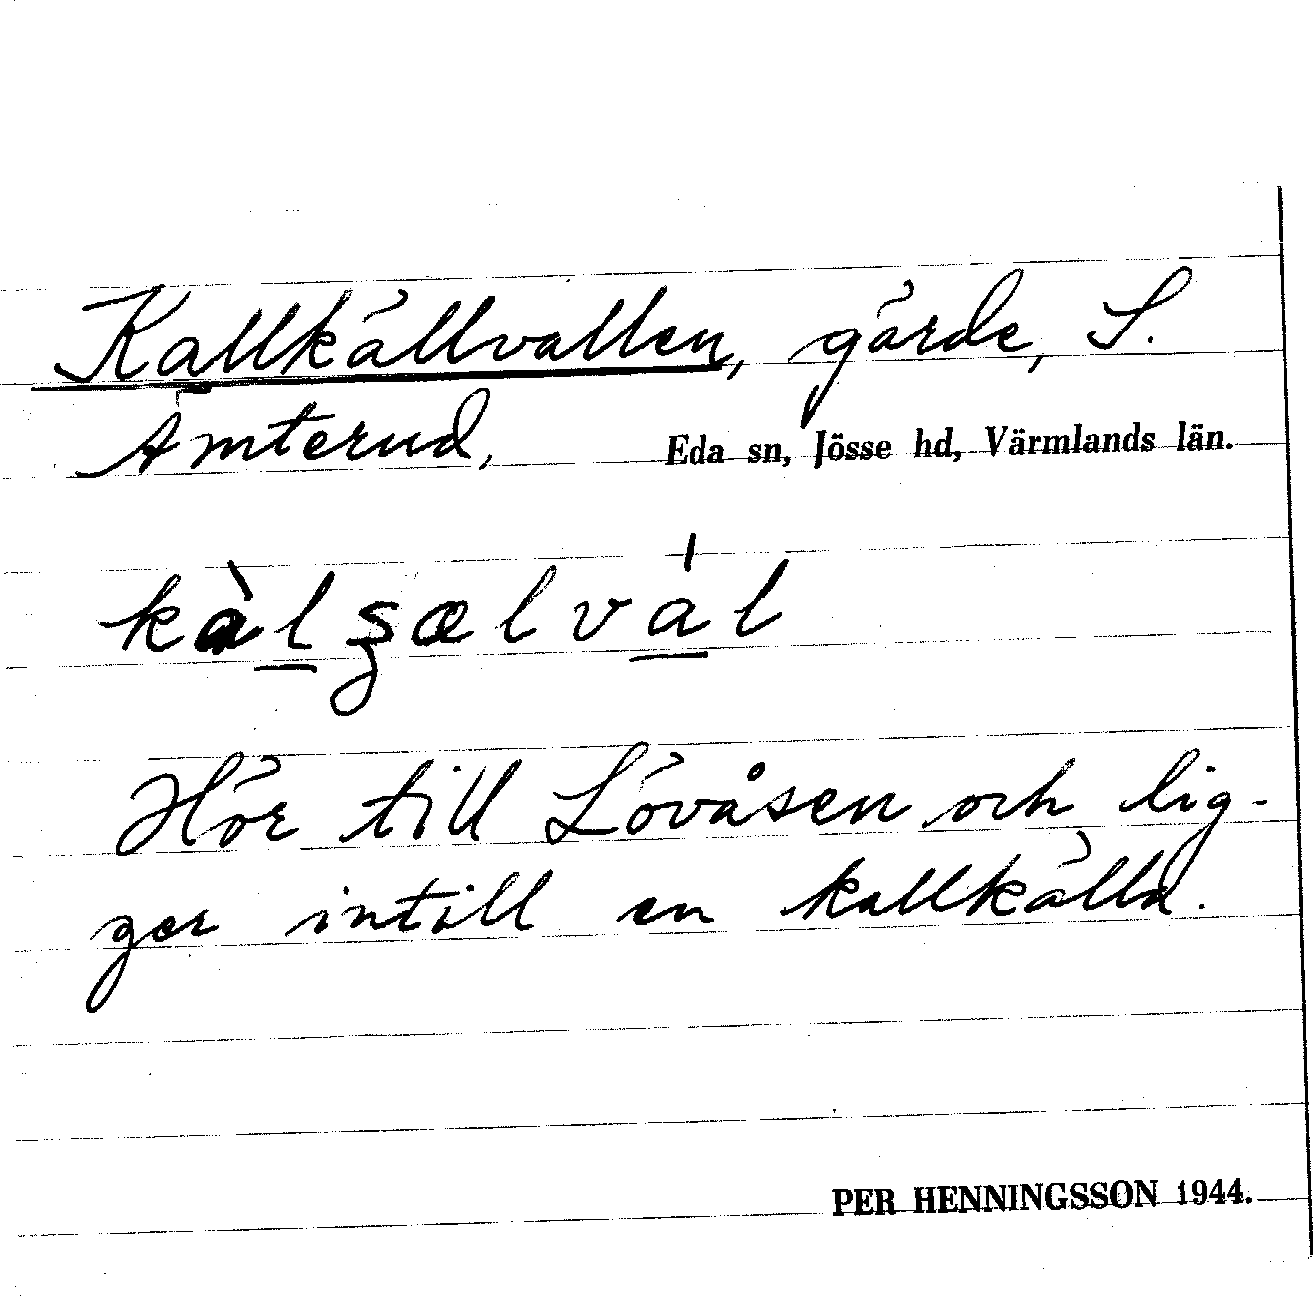 Kallkällvallen, gärde, S.
Ämterud, Eda sn, Jösse hd, Värmlands län.
Hör till Lövåsen och lig-
ger intill en kallkälla.
PER HENNINGSSON 1944.